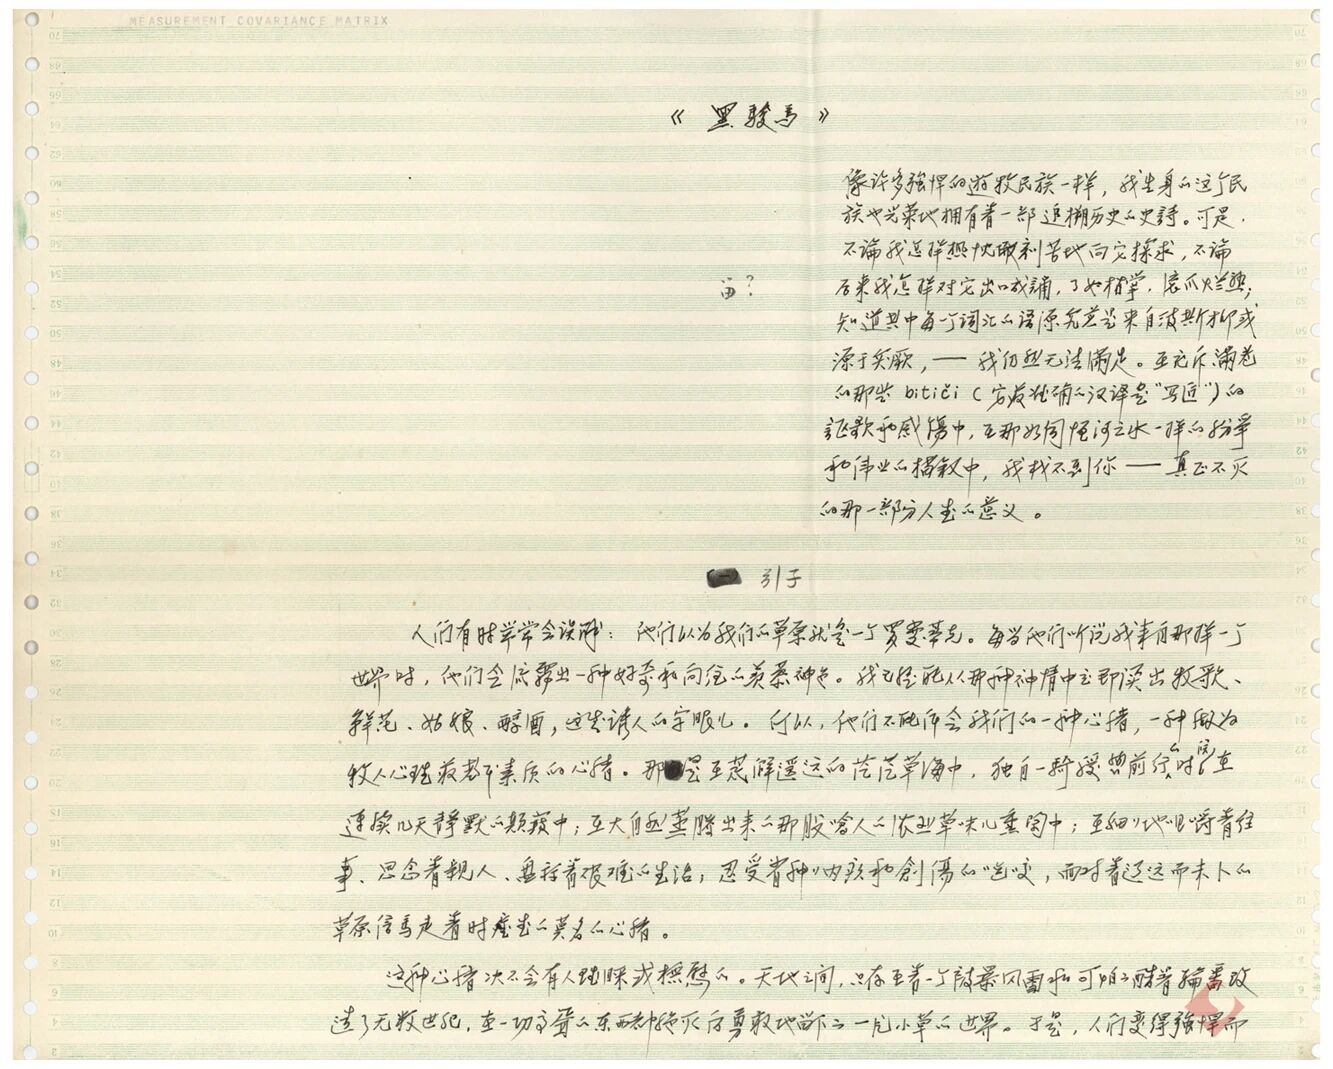 MEASUREMENT COVARIANCE MATRIX
《黑骏马》
像许多强悍的游牧民族一样，我生身的这个民
族也光荣地拥有着一部追溯历史的史詩。可是，
不论我怎样热忱 刻苦地向它探求，不论
后来我怎样对它出口成誦，了如指掌，滚瓜烂熟；
苗？
知道其中每一个词汇的语源究竟是来自波斯抑或
源于突厥，——我仍然无法满足。在充斥满卷
的那些 bitiči（ 准确的汉译是“写匠”）的
証歌和感傷中，在那如同恒河之水一样的纷争
和伟业的描叙中，我找不到你——真正不灭
的那一部分人生的意义。
引子
人们有时常常会误解：他们以为我们的草原就是一个罗曼蒂克。每当他们听说我来自那样一个
世界时，他们会流露出一种好奇和向往的羡慕神色。我已经能从那种神情中立即读出牧歌、
鲜花、姑娘、醇酒，这些诱人的字眼儿。所以，他们不能体会我们的一种心绪，一种做为
牧人心理 素质的心绪。那是在 遥远的茫茫草海中，独自一骑缓 前行时；在
连续几天静默的颠簸中；在大自然蒸腾出来的那股呛人的浓烈草味儿熏陶中；在细细地咀嚼着往
事、思念着親人、 着艰难的生活；忍受着种种内疚和創傷的 ，面对着辽远而未卜的
草原信馬走着时产生的莫名的心绪。
这种心绪决不会有人理睬或撫慰的。天地之间，只存在着一个被暴风雪和可怕的酷暑轮番改
造了无数世纪，在一切 的东西都绝灭后勇敢地留下的一片小草的世界。于是，人们变得強悍而